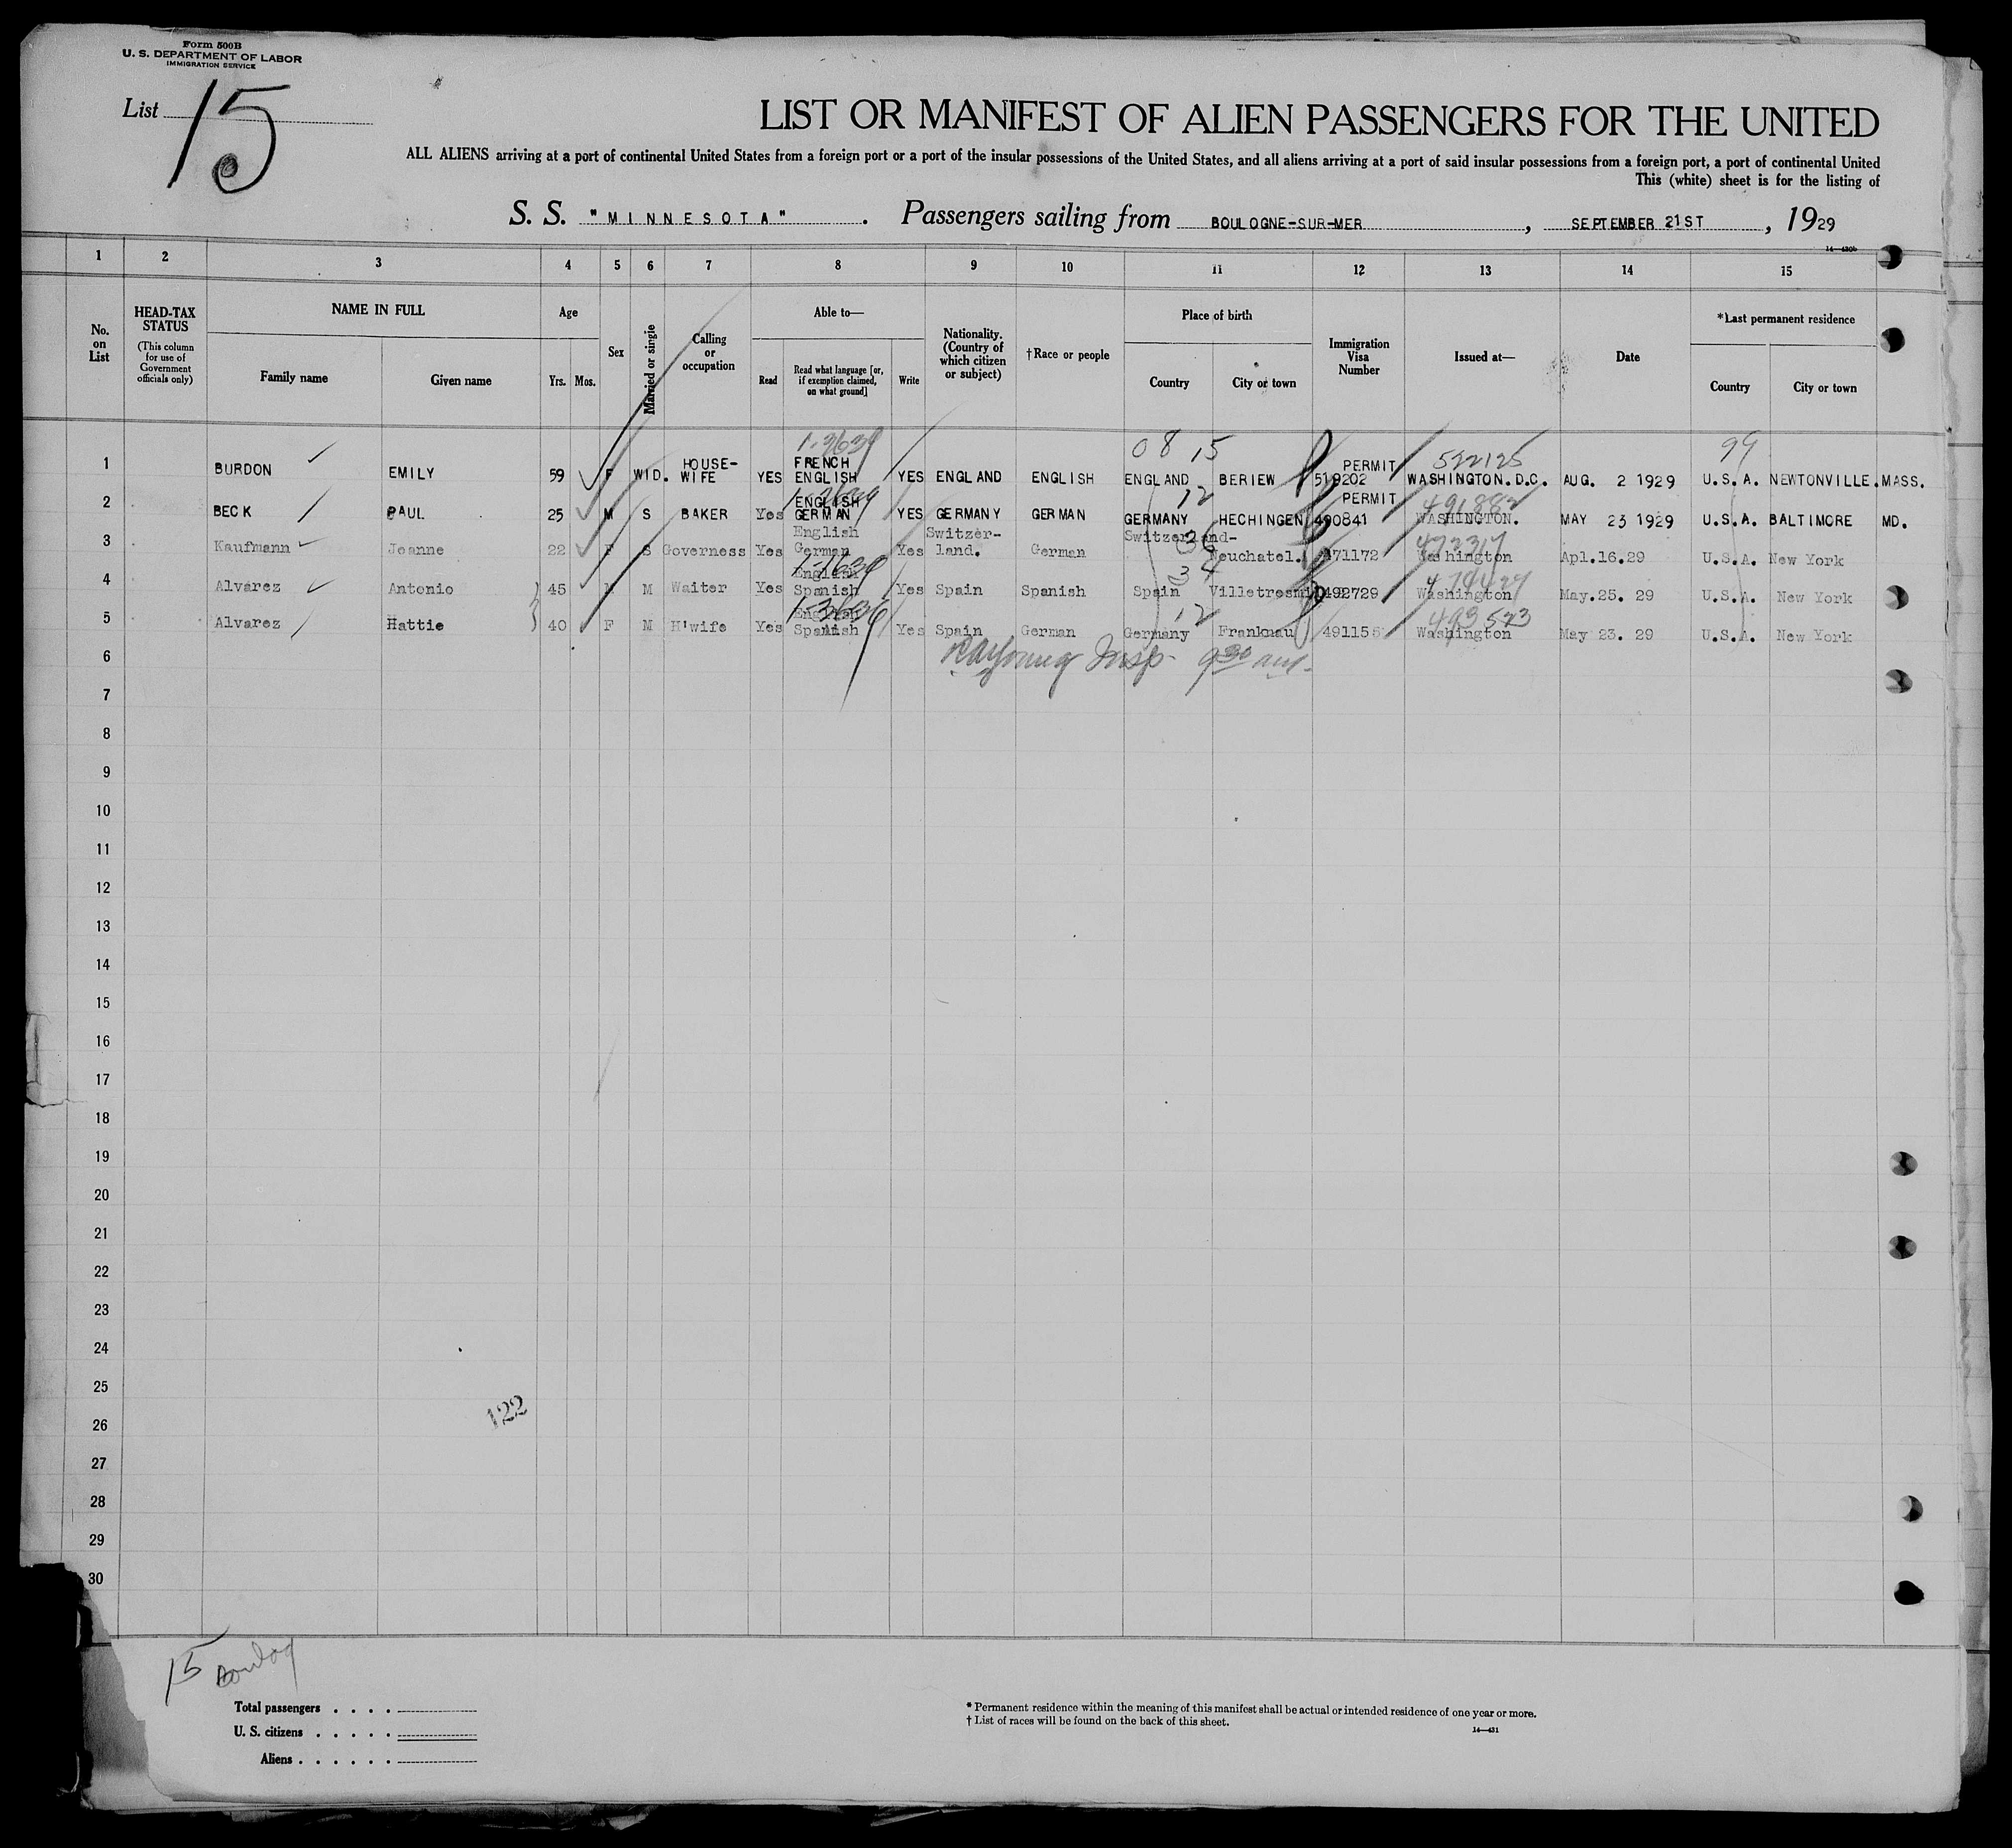 Form 500B
U. S. DEPARTMENT OF LABOR
IMMIGRATION SERVICE
List 15
LIST OR MANIFEST OF ALIEN PASSENGERS FOR THE UNITED
ALL ALIENS arriving at a port of continental United States from a foreign port or a port of the insular possessions of the United States, and all aliens arriving at a port of said insular possessions from a foreign port, a port of continental United
This (white) sheet is for the listing of
S. S. "MINNESOTA" . Passengers sailing from BOULOGNE-SUR-MER , SEPTEMBER 21ST , 1929
14—430b
1 2 3 4 5 6 7 8 9 10 11 12 13 14 15
No. on List
HEAD-TAX STATUS
(This column for use of Government officials only)
NAME IN FULL
Family name Given name
Age
Yrs. Mos.
Sex
Married or single
Calling or occupation
Able to—
Read
Read what language [or, if exemption claimed, on what ground]
Write
Nationality. (Country of which citizen or subject)
†Race or people
Place of birth
Country City or town
Immigration Visa Number
Issued at—
Date
*Last permanent residence
Country City or town
08 15 522125 99
1 BURDON EMILY 59 F WID. HOUSE-WIFE YES FRENCH ENGLISH YES ENGLAND ENGLISH ENGLAND BERIEW PERMIT 519202 WASHINGTON.D.C. AUG. 2 1929 U.S.A. NEWTONVILLE.MASS.
12 491882
2 BECK PAUL 25 M S BAKER Yes ENGLISH GERMAN YES GERMANY GERMAN GERMANY HECHINGEN PERMIT 490841 WASHINGTON. MAY 23 1929 U.S.A. BALTIMORE MD.
36
3 Kaufmann Jeanne 22 F S Governess Yes English German Yes Switzer-land. German Switzerland- Neuchatel. 471172 Washington Apl.16.29 U.S.A. New York
34
4 Alvarez Antonio ) 45 M M Waiter Yes English Spanish Yes Spain Spanish Spain 492729 Washington May.25. 29 U.S.A. New York
12 493523
5 Alvarez Hattie ) 40 F M H'wife Yes English Spanish Yes Spain German Germany Franknau 491155 Washington May 23. 29 U.S.A. New York
Insp. 9 30 am.
6
7
8
9
10
11
12
13
14
15
16
17
18
19
20
21
22
23
24
25
122
26
27
28
29
30
15
Total passengers . . . .
U. S. citizens . . . . .
Aliens . . . . . .
* Permanent residence within the meaning of this manifest shall be actual or intended residence of one year or more.
† List of races will be found on the back of this sheet.
14—431